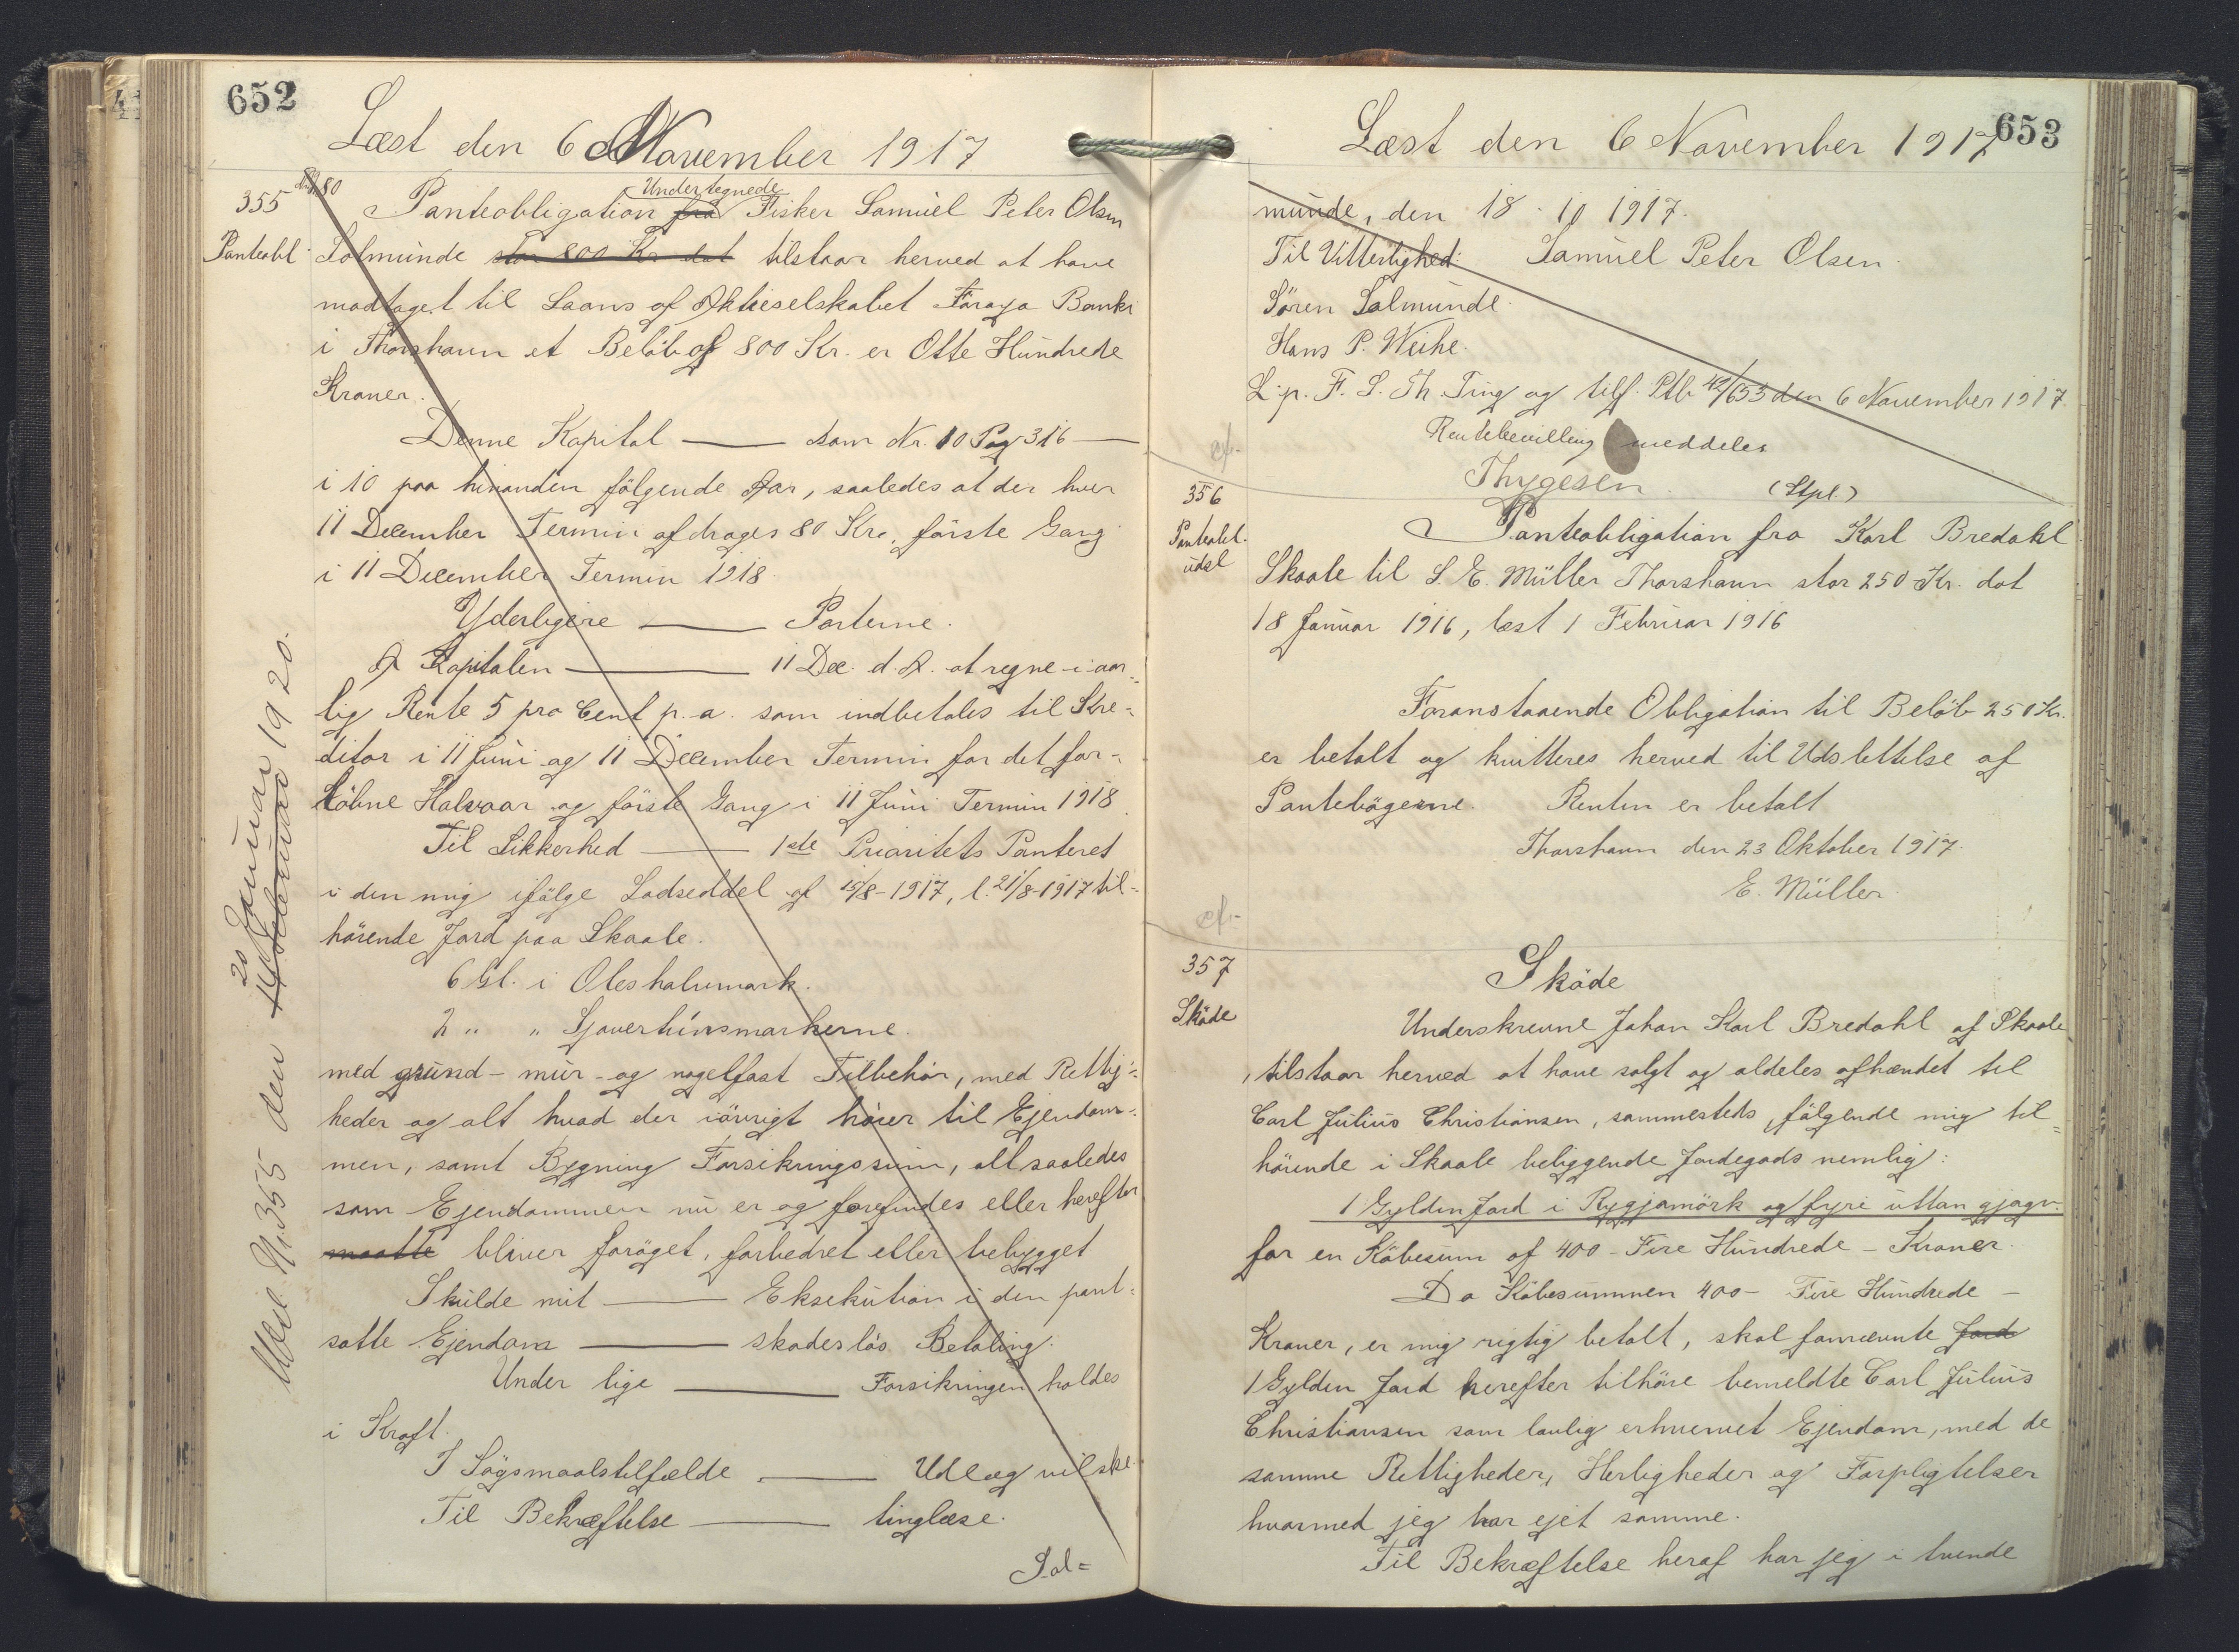 652
Læst den 6 November 1917
355
Panteobl.
Panteobligation fra Undertegnede Fisker Samuel Peter Olsen
Solmunde stor 800 Kr dat tilstaar herved at have
modtaget til Laans af Aktieselskabet Föroya Banki
i Thorshavn et Beløb af 800 Kr. er Otte Hundrede
Kroner.
Denne Kapital —— som Nr. 10 Pag 316 ——
i 10 paa hinanden fölgende Aar, saaledes at der hver
11 December Termin afdrages 80 Kr., förste Gang
i 11 December Termin 1918.
Yderligere —— Parterne.
Af Kapitalen —— 11 Dec. d. A. at regne - i aar=
lig Rente 5 pro Cent p. a. som indbetales til Kre=
ditor i 11 Juni og 11 December Termin for det for=
löbne Halvaar og förste Gang i 11 Juni Termin 1918.
Til Sikkerhed —— 1ste Prioritets Panteret
i den mig ifölge Lodseddel af 15/8-1917, l. 21/8-1917 til=
hörende Jord paa Skaale.
6 Gl. i Oleshalvumark.
2 " " Gjoverhúsmarkerne.
med grund- mur- og nagelfast Tilbehör, med Rettig=
heder og alt hvad der iövrigt hörer til Ejendom=
men, samt Bygning Forsikringssum, alt saaledes
som Ejendommen nu er og forefindes eller herefter
maatte bliver foröget, forbedret eller bebygget
Skulde mit —— Eksekution i den pant=
satte Ejendom —— skadeslös Betaling.
Under lige —— Forsikringen holdes
i Kraft.
I Sögsmaalstilfælde —— Udlæg vil ske.
Til Bekræftelse —— tinglæse.
Sal=
Udsl. Nr. 355 den 20 Januar 1920.
653
Læst den 6 November 1917
munde, den 18. 10 1917.
Til Vitterlighed: Samuel Peter Olsen.
Sören Salmunde.
Hans P. Weihe.
L. p. F. S. Th. Ting og tilf. Ptb. 42/653 den 6 November 1917.
Rentebevilling meddeles
Thygesen. (Stpl.)
356
Panteobl.
udsl
Panteobligation fra Karl Bredahl
Skaale til S. E. Müller Thorshavn stor 250 Kr. dat
18 Januar 1916, læst 1 Februar 1916
Foranstaaende Obligation til Beløb 250 Kr.
er betalt og kvitteres herved til Udslettelse af
Pantebögerne. Renten er betalt
Thorshavn den 23 Oktober 1917.
E. Müller.
357
Sköde
Sköde
Underskrevne Johan Karl Bredahl af Skaale
, tilstaar herved at have solgt og aldeles afhændet til
Carl Julius Christiansen, sammesteds, fölgende mig til=
hörende i Skaale beliggende Jordegods nemlig:
1 Gylden Jord i Ryggjamörk og fyri uttan gjagv.
for en Köbesum af 400 - Fire Hundrede - Kroner.
Da Köbesummen 400 - Fire Hundrede -
Kroner, er mig rigtig betalt, skal fornævnte Jord
1 Gylden Jord herefter tilhöre bemeldte Carl Julius
Christiansen som lovlig erhvervet Ejendom, med de
samme Rettigheder, Herligheder og Forpligtelser
hvormed jeg har ejet samme.
Til Bekræftelse heraf har jeg i tvende